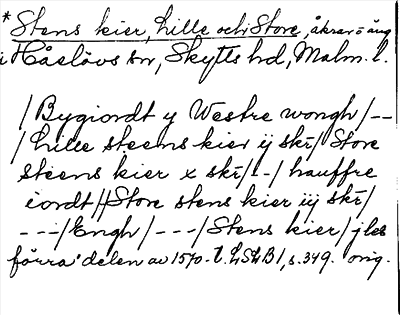 * Stens kier, Lille och Store, åkrar o äng
i Håslövs sn, Skytts hd, Malm. l.
/Bygiordt y Westre wongh/--
/Lille steens kier ij skr/ Store
steens kier x skr/-/hauffre
iordt//Store stens kier iij skr/
---/Engh/---/Stens kier/ jles
förra delen av 1570-t. LSLB1, s. 349. orig.